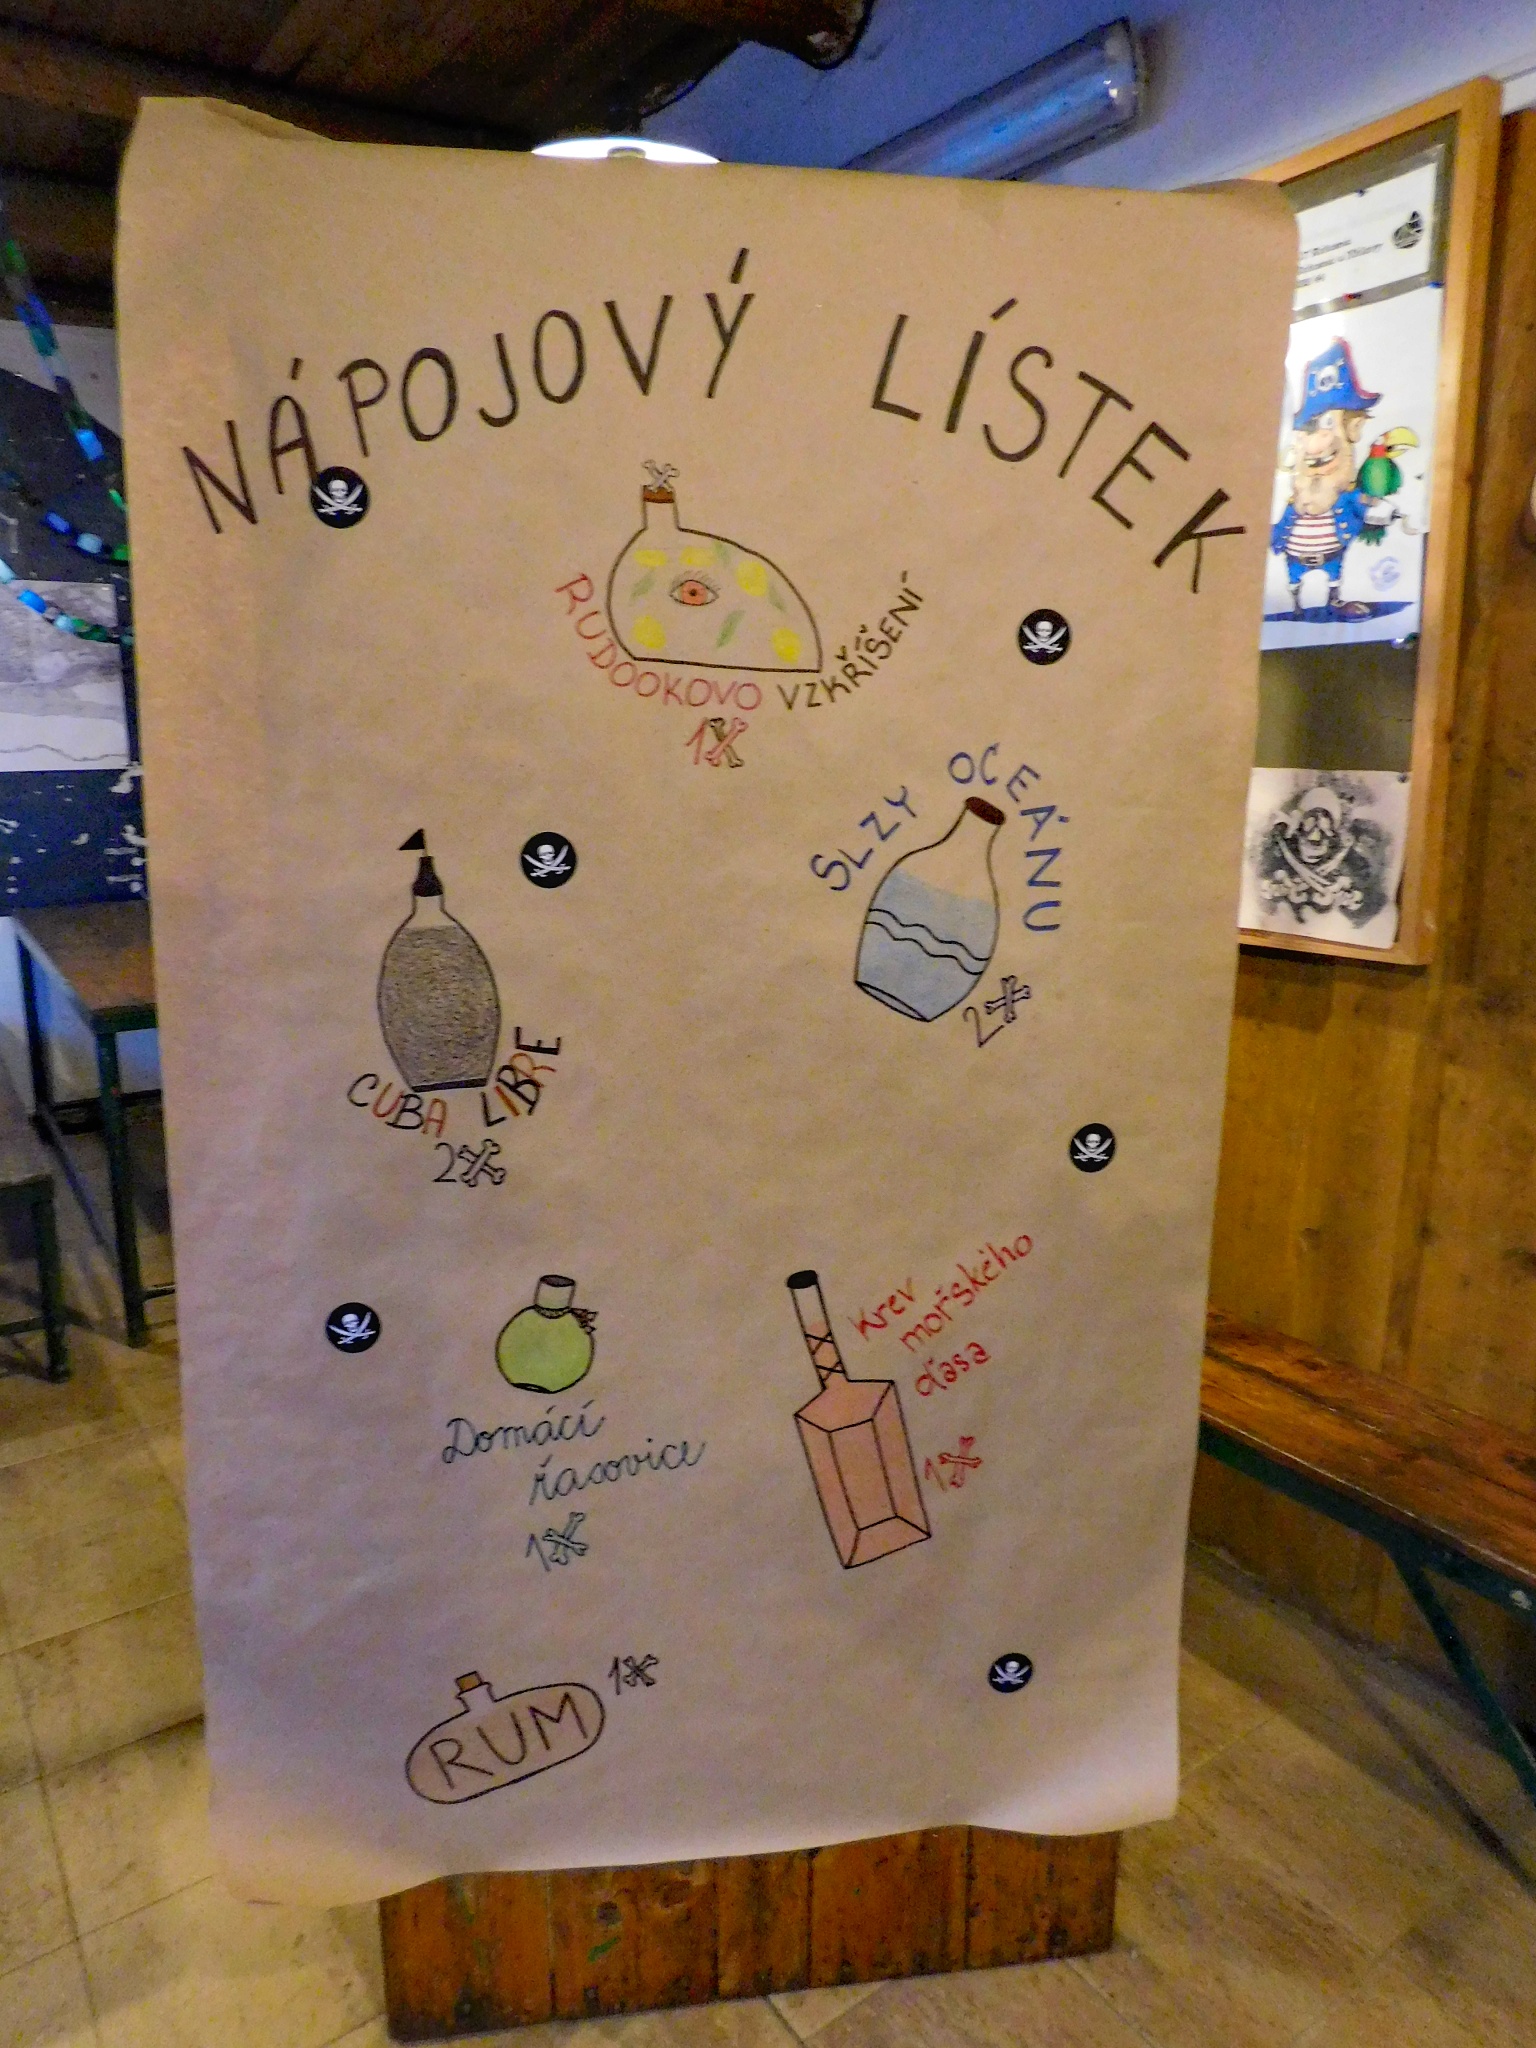 NÁPOJOVÝ LÍSTEK
RUDOOKOVO VZKŘÍŠENÍ
1
SLZY OCEÁNU
2
CUBA LIBRE
2
Domácí
řasovice
1
Krev
mořského
ďasa
1
RUM
1